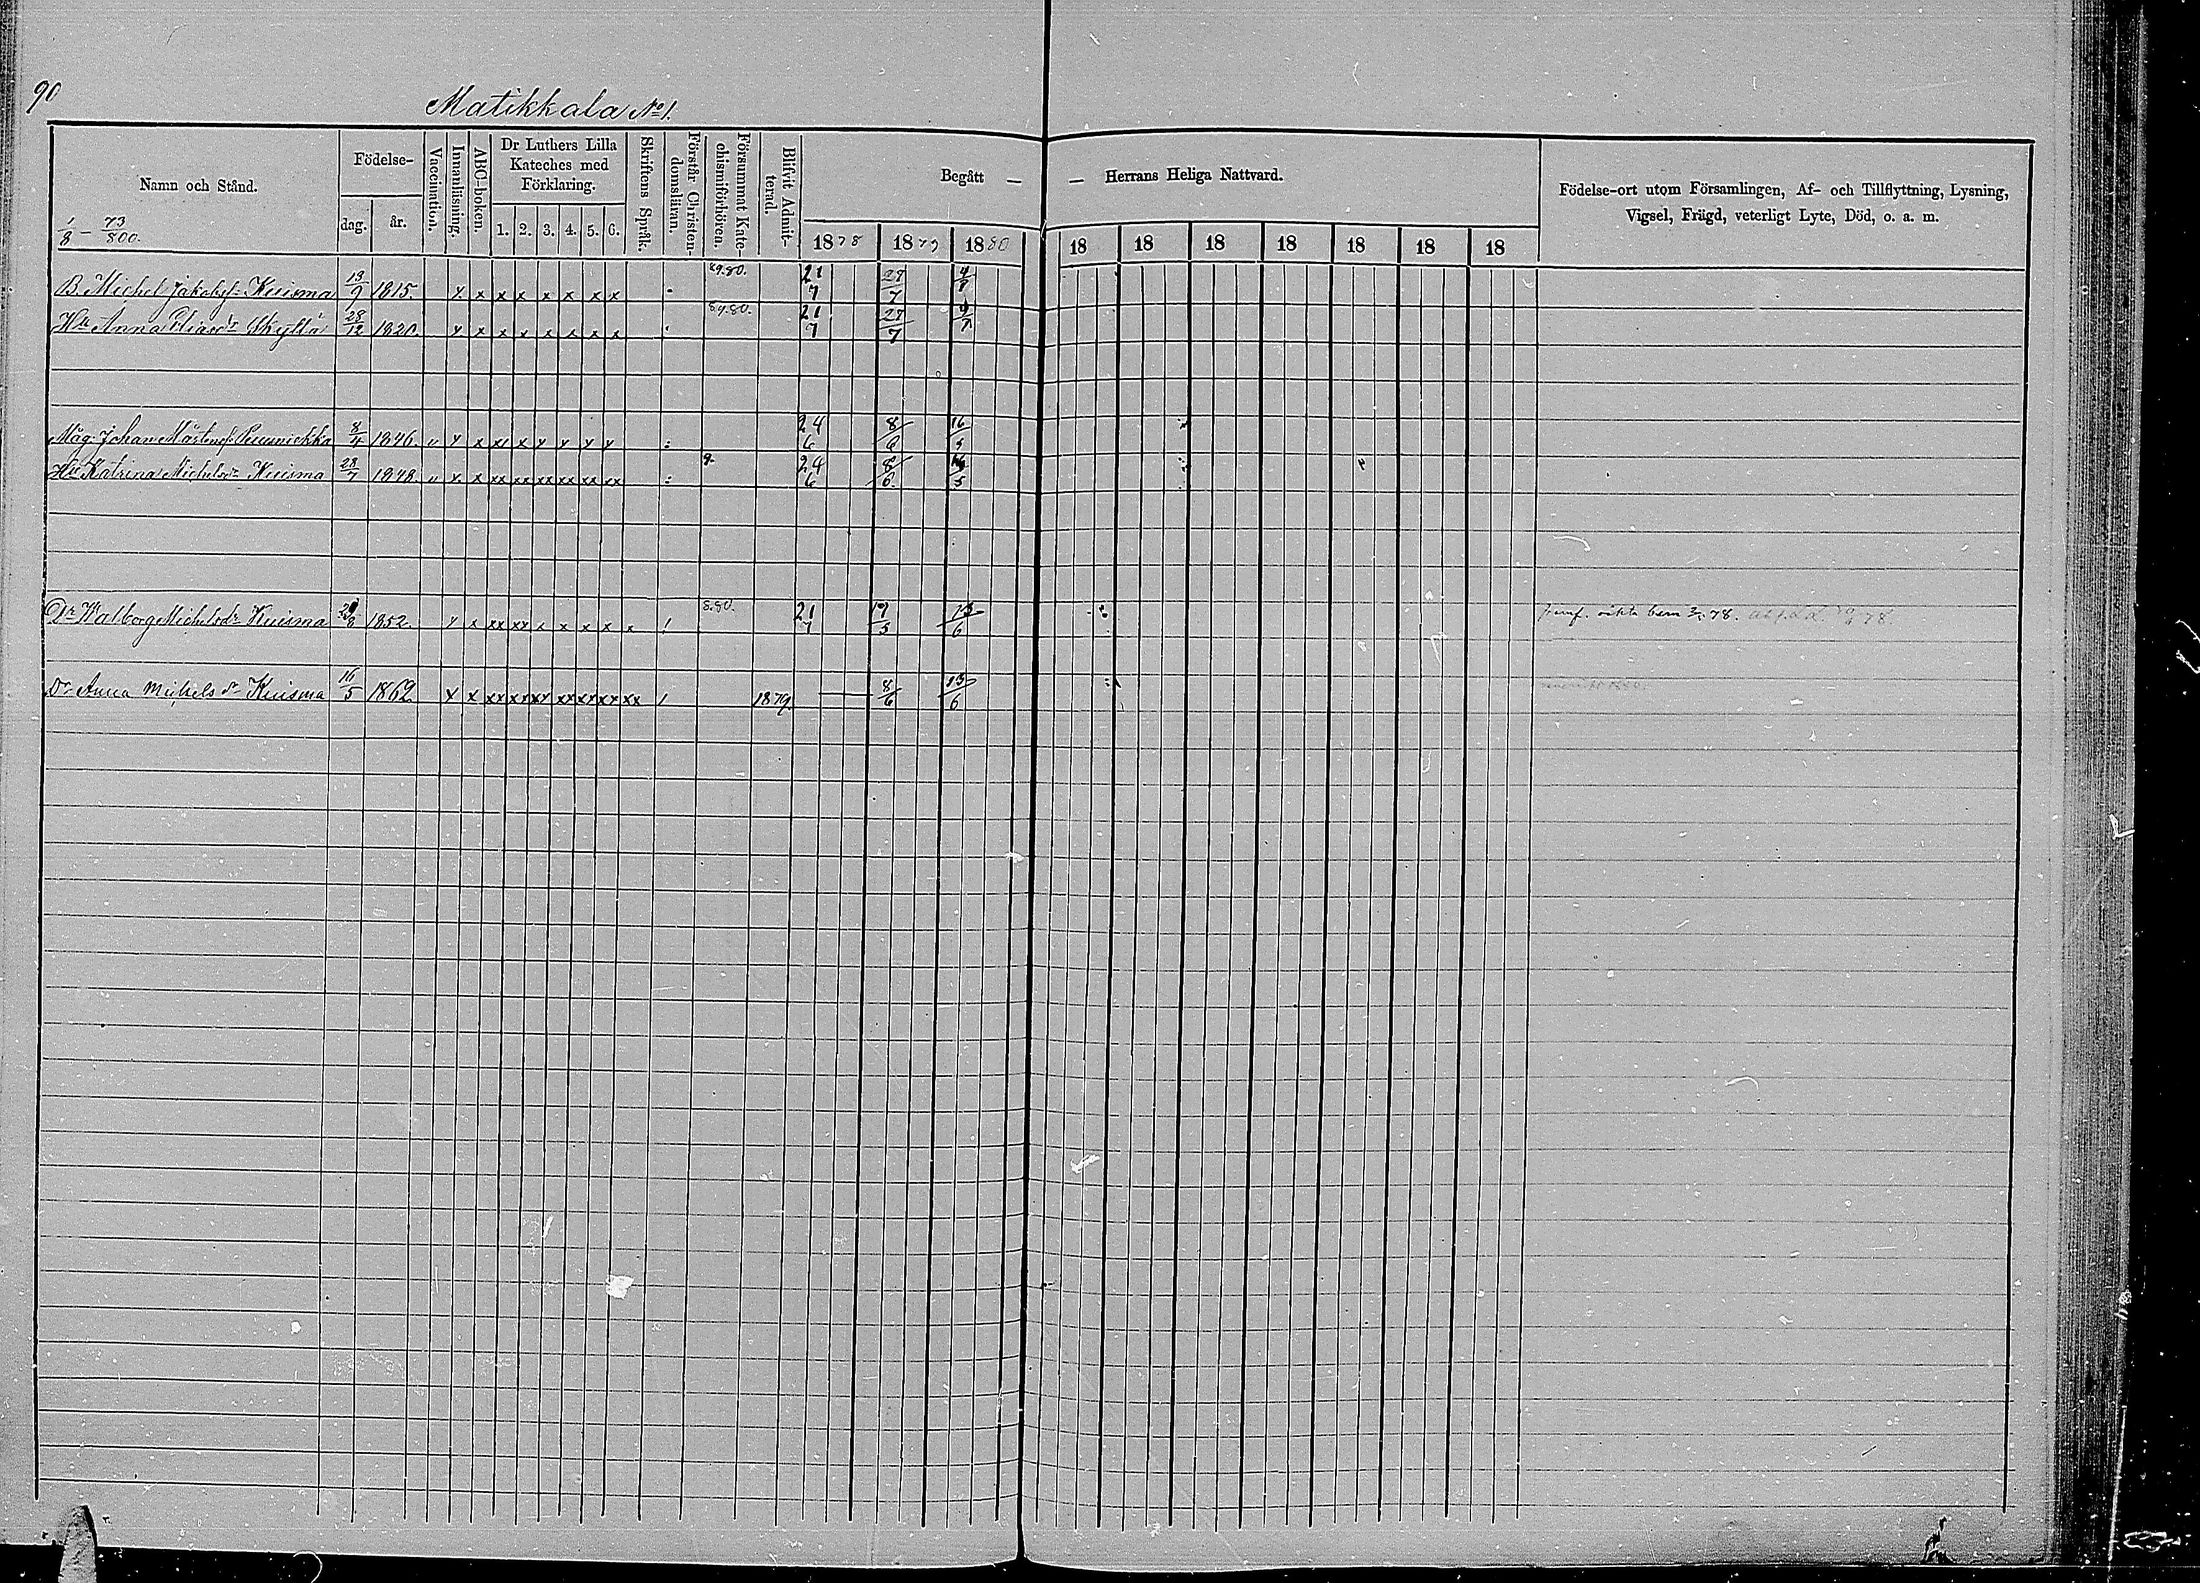 90
Matikkala No 1.
Namn och Stånd.
1/8 - 73/800.
Födelse-
dag.
år.
Vaccination.
Innanläsning.
ABC-boken.
Dr Luthers Lilla
Kateches med
Förklaring.
1. 2. 3. 4. 5. 6.
Skriftens Språk.
Förstår Christen-
domsläran.
Försummat Kate-
chismiförhören.
Blifvit Admit-
terad.
Begått — — Herrans Heliga Nattvard.
1878 1879 1880 18 18 18 18 18 18 18
Födelse-ort utom Församlingen, Af- och Tillflyttning, Lysning,
Vigsel, Frägd, veterligt Lyte, Död, o. a. m.
B. Michel Jakobss: Kuisma 13/9 1815. x x x x x x x x 21/7 27/7 4/7
Hu Anna Eliaed:r Skyttä 28/12 1820. x x x x x x x x 8.9.80. 21/7 27/7 4/7
Måg. Johan Mårtenss: 8/4 1846 " x x x x x x x x : 24/6 8/6 16/5
Hu Katrina Michelsd:r Kuisma 28/7 1848 " x x xx xx xx xx xx xx : 9. 24/6 8/6 16/5
Dr Walborg Michelsdr Kuisma 1852. x x xx xx x x x x x / 8.80. 21/7 13/6
oäkta barn 78.
Dr Anna Michels dr Kuisma 16/5 1862 x x xx xx xx xx xx xx xx / 1879. — 8/6 13/6